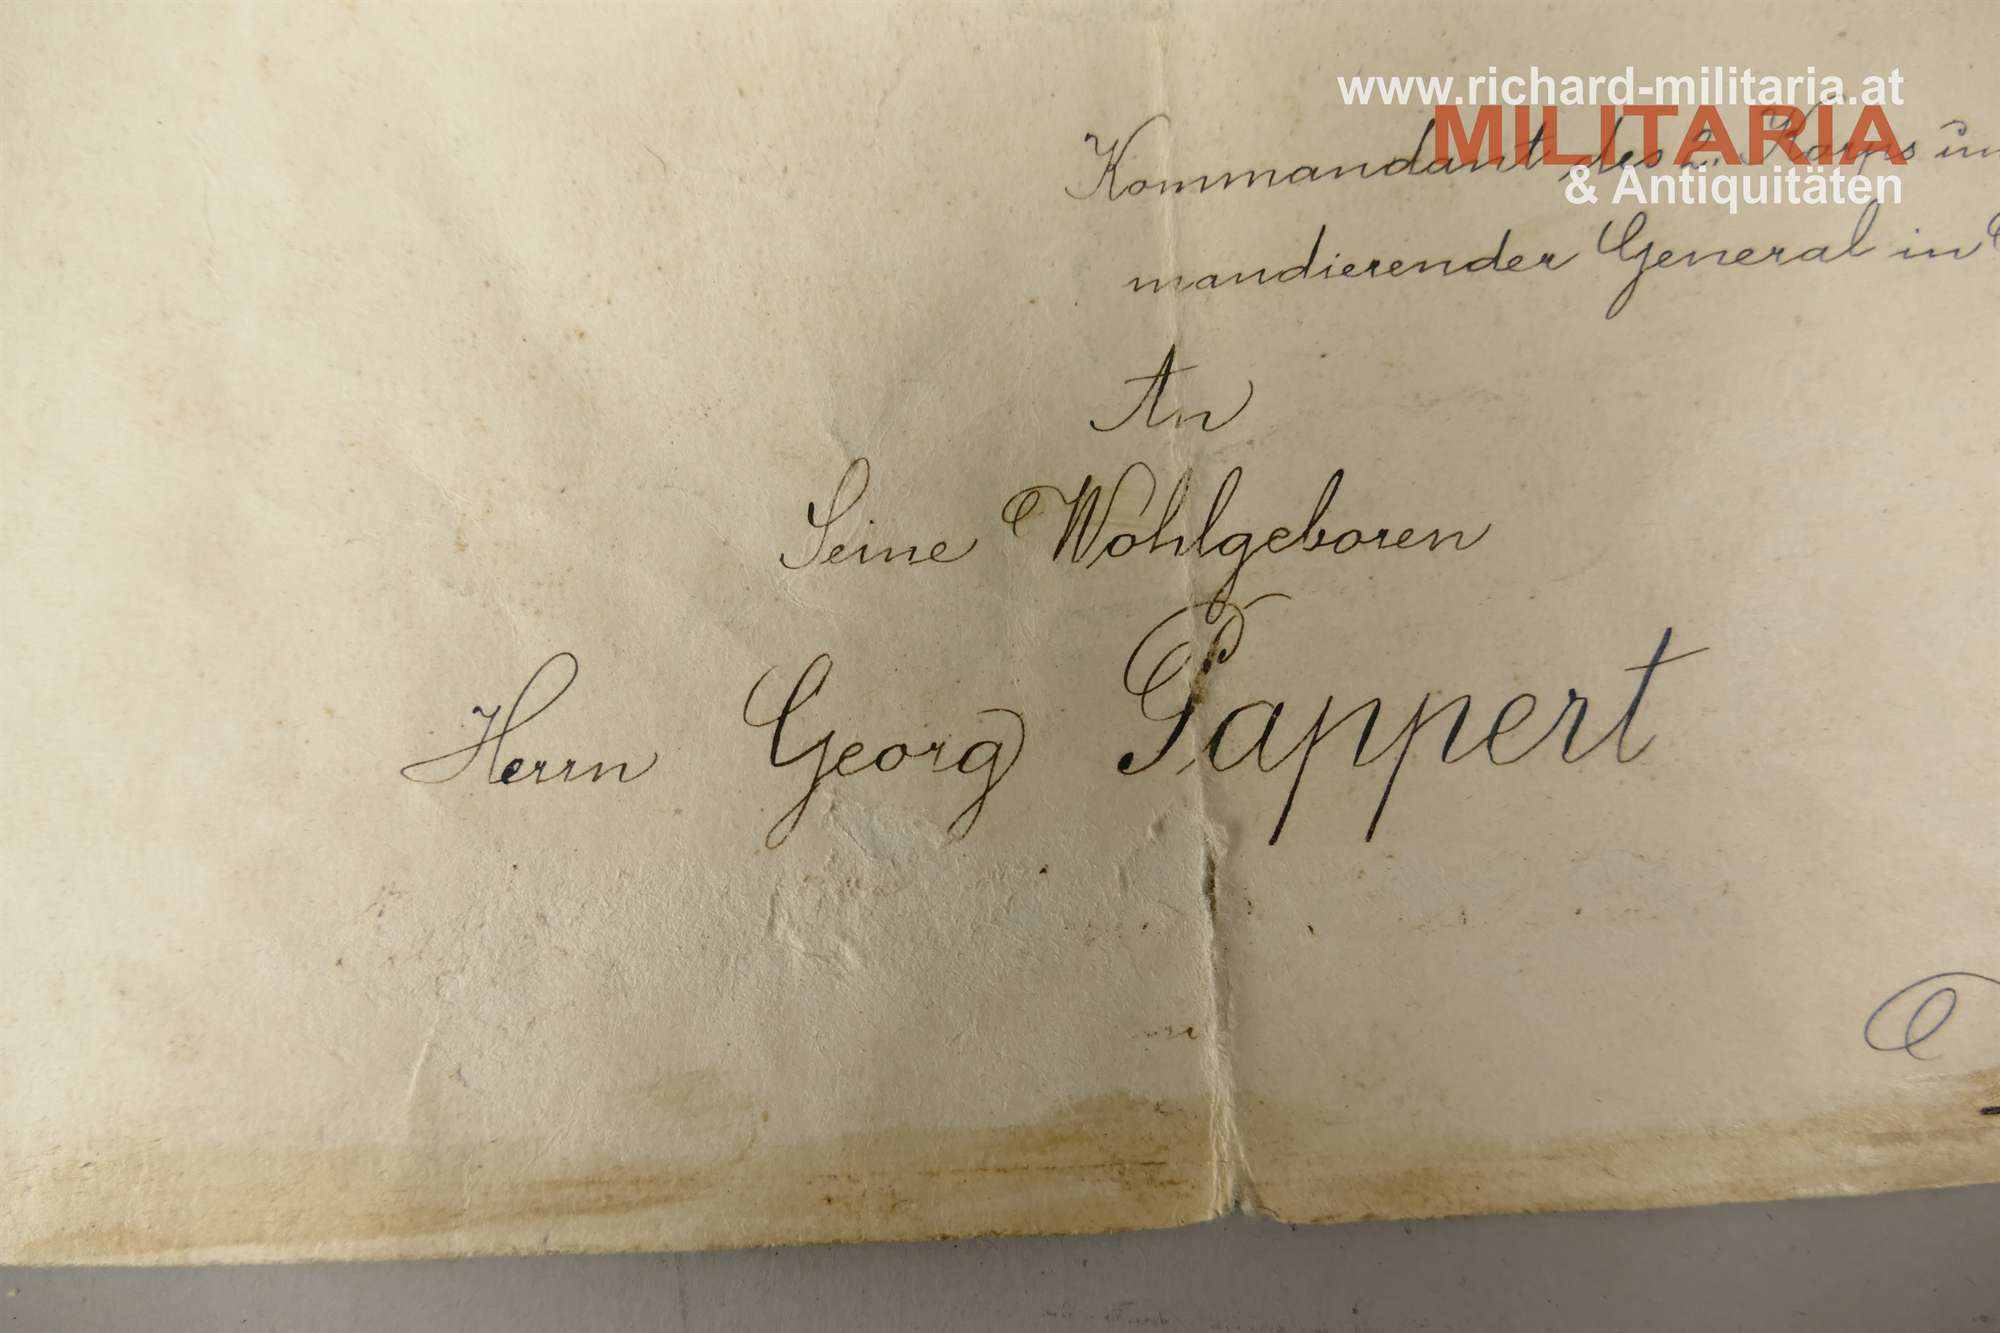 www.richard-militaria.at
MILITARIA
& Antiquitäten
Kommandant des 2. Korps un
mandierender General in
An
Seine Wohlgeboren
Herrn Georg Pappert